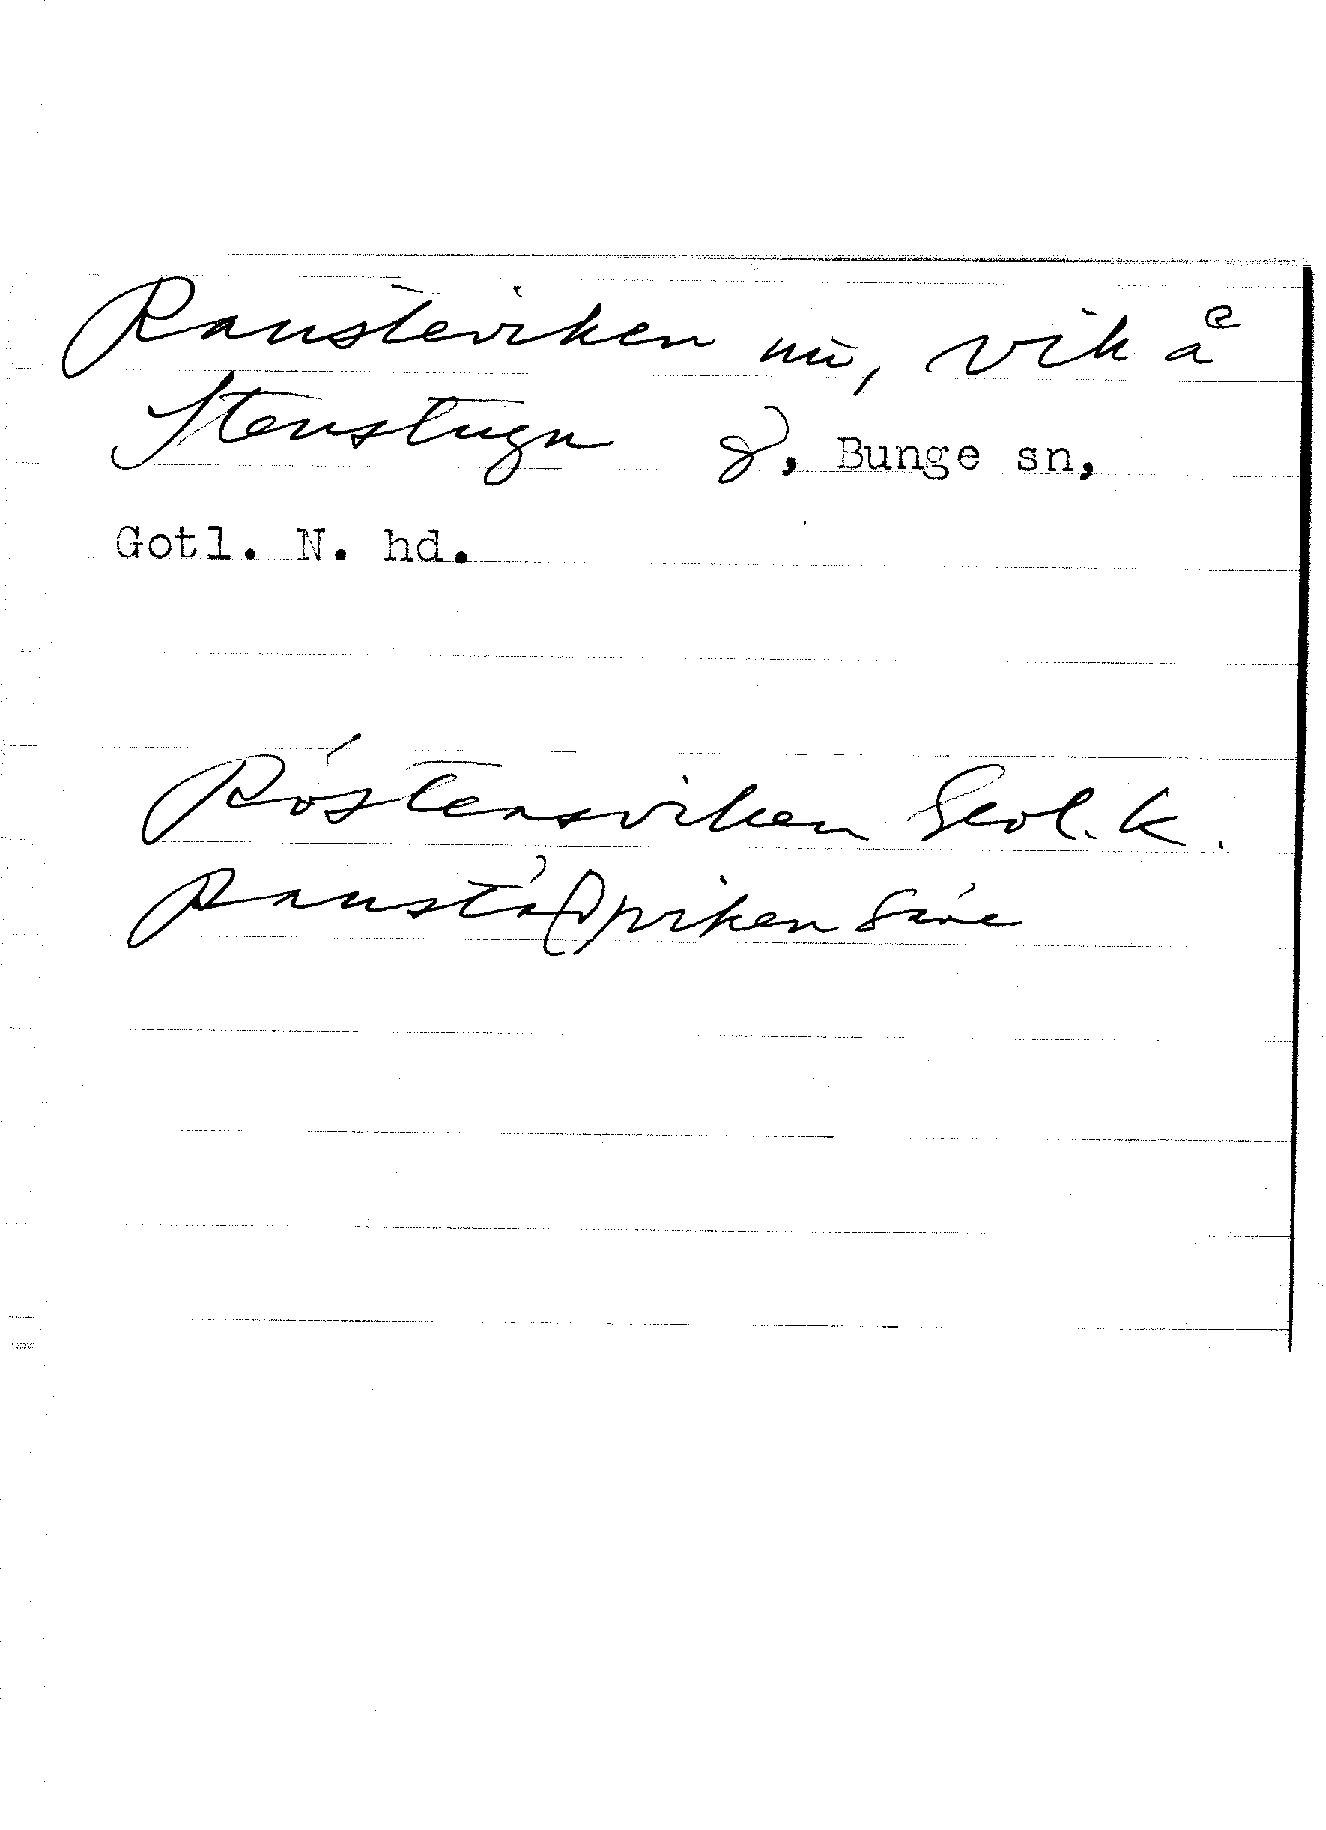 Rausteviken nu, vik å
Stenstugu g, Bunge sn,
Gotl. N. hd.
Röstensviken Geol. k.
Raustä(s)viken Säve